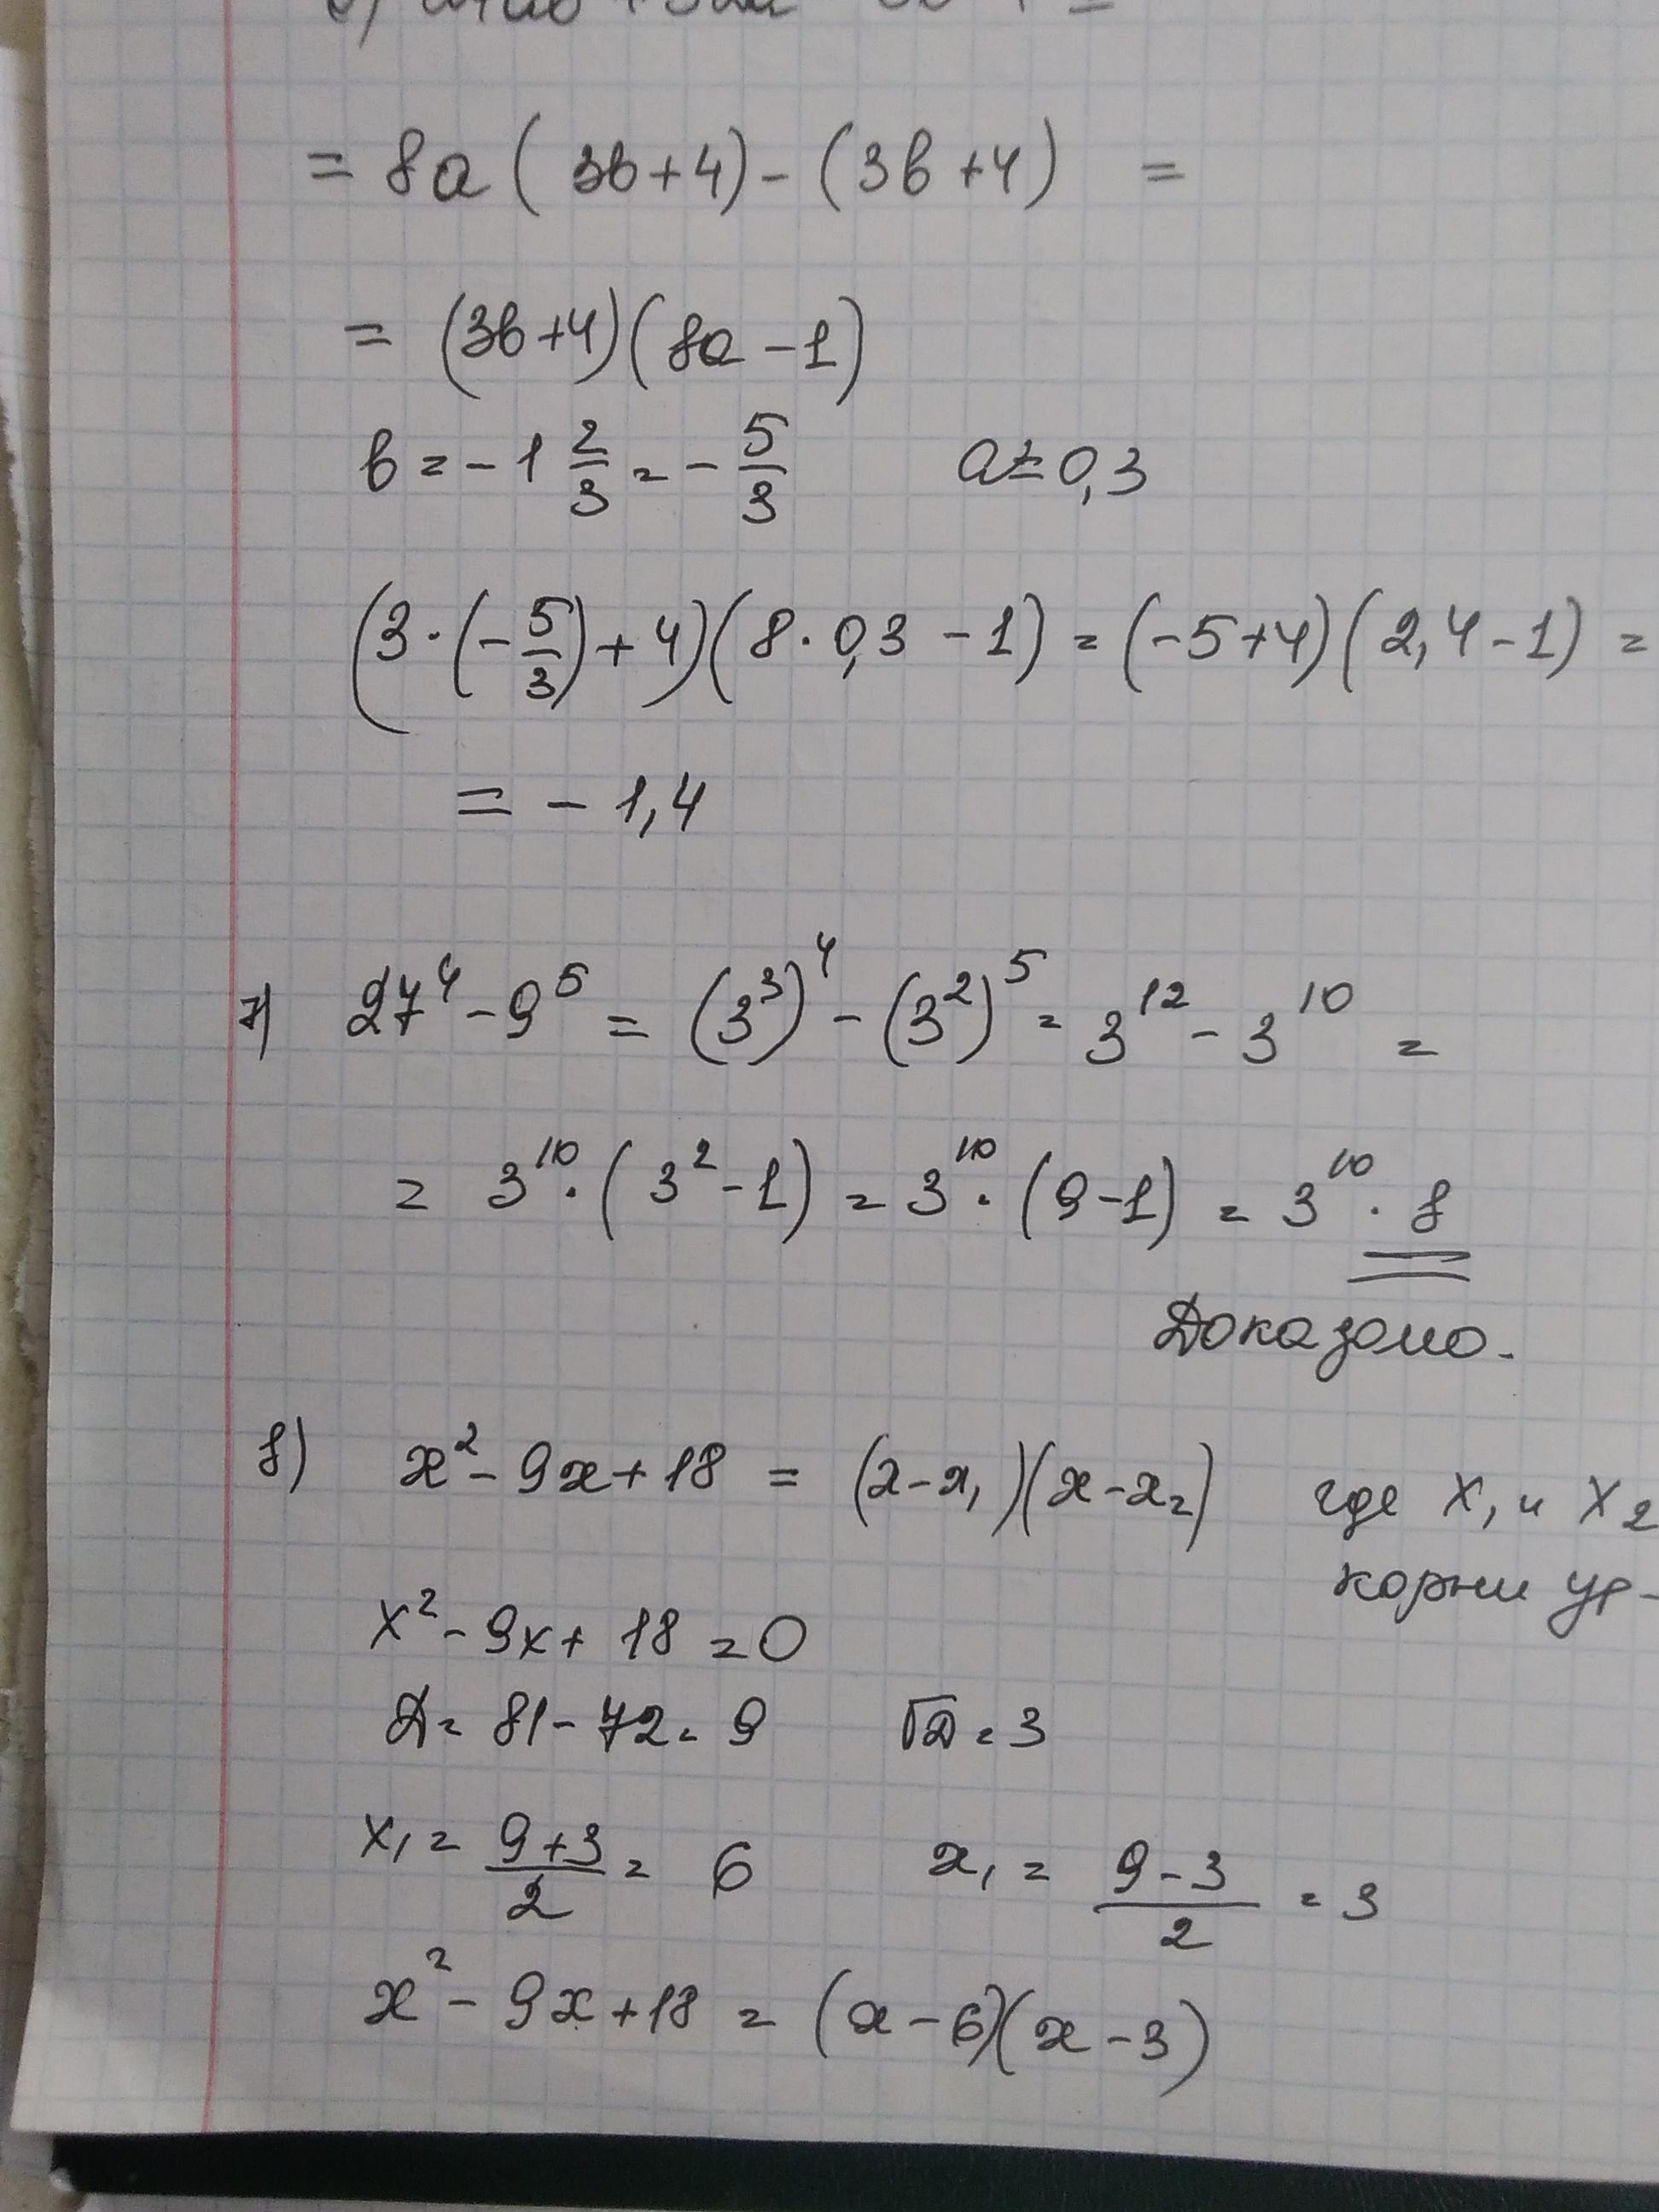 = 8a ( 3b+4) - (3b+4) =
= (3b+4)(8a-1)
b = -1 2/3 = - 5/3 a = 0,3
(3·(-5/3)+4)(8·0,3-1) = (-5+4)(2,4-1) =
= - 1,4
7) 27⁴ - 9⁵ = (3³)⁴ - (3²)⁵ = 3¹² - 3¹⁰ =
= 3¹⁰·(3²-1) = 3¹⁰·(9-1) = 3¹⁰·8
Доказано.
8) x² - 9x + 18 = (x-x₁)(x-x₂) где x₁ и x₂
корни ур-
x² - 9x + 18 = 0
D = 81 - 72 = 9 √D = 3
x₁ = (9+3)/2 = 6 x₁ = (9-3)/2 = 3
x² - 9x + 18 = (x-6)(x-3)